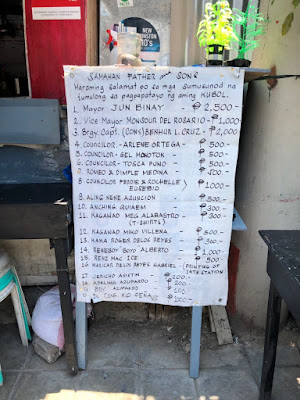 NEW
10's
SAMAHAN FATHER AND SONS
Maraming Salamat po sa mga sumusunod na
tumulong sa pagpapatayo ng aming KUBOL:
1. Mayor JUN BINAY - ₱ 2,500-
2. Vice Mayor MONSOUR DEL ROSARIO - ₱1,000-
3. Brgy. Capt. (CONS) BENHUR L. CRUZ - ₱2,000-
4. COUNCILOR - ARLENE ORTEGA - ₱ 500-
5. COUNCILOR - GEL MONOTOK - ₱ 500-
6. COUNCILOR - TOSCA PUNO - ₱ 500-
7. ROMEO & DIMPLE MEDINA - ₱ 500-
8. COUNCILOR FERDIE & ROCHELLE
EUSEBIO ₱ 1000-
9. ALING NENE ASUNCION - ₱ 300-
10. ANCHING QUIAEM - ₱
11. KAGAWAD MEG ALABASTRO - ₱ 300-
(T-SHIRTS)
12. KAGAWAD MIKO VILLENA - ₱ 500-
13. MAMA ROGER DELOS REYES - ₱ 300-
14. RENEBOY BOYO ALBERTO - ₱ 1,000-
15. RENE MAC ICE - ₱ 500-
16. MARICAR DELOS REYES GABRIEL - (PRINTING OF
14TH STATION)
17. JERICHO - ₱ 200-
18. AZUPARDO - ₱ 200-
19. BOY - ₱ 100-
20. PEÑA - ₱ 200-